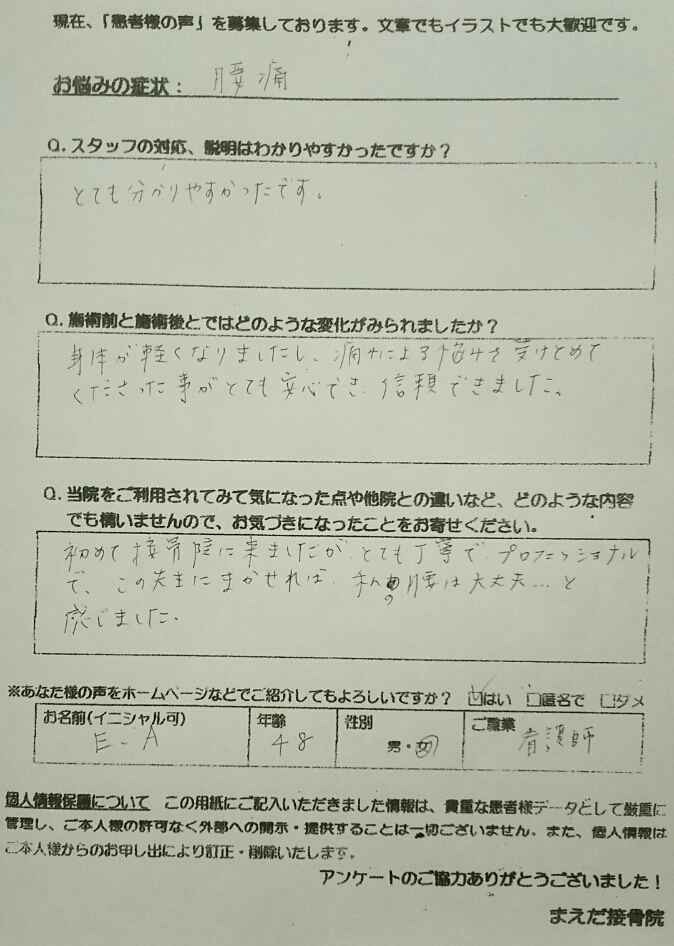 現在、「患者様の声」を募集しております。文章でもイラストでも大歓迎です。
お悩みの症状： 腰痛
Q. スタッフの対応、説明はわかりやすかったですか？
とても分かりやすかったです。
Q. 施術前と施術後とではどのような変化がみられましたか？
身体が軽くなりましたし、痛みによる悩みを受けとめて
くださった事がとても安心でき、信頼できました。
Q. 当院をご利用されてみて気になった点や他院との違いなど、どのような内容
でも構いませんので、お気づきになったことをお寄せください。
初めて接骨院に来ましたが、とても丁寧で プロフェッショナル
で、この先生にまかせれば、私の腰は大丈夫…と
感じました。
※あなた様の声をホームページなどでご紹介してもよろしいですか？ ☑はい □匿名で □ダメ
お名前(イニシャル可) 年齢 性別 ご職業
E-A 48 男・女 看護師
個人情報保護について この用紙にご記入いただきました情報は、貴重な患者様データとして厳重に
管理し、ご本人様の許可なく外部への開示・提供することは一切ございません。また、個人情報は
ご本人様からのお申し出により訂正・削除いたします。
アンケートのご協力ありがとうございました！
まえだ接骨院